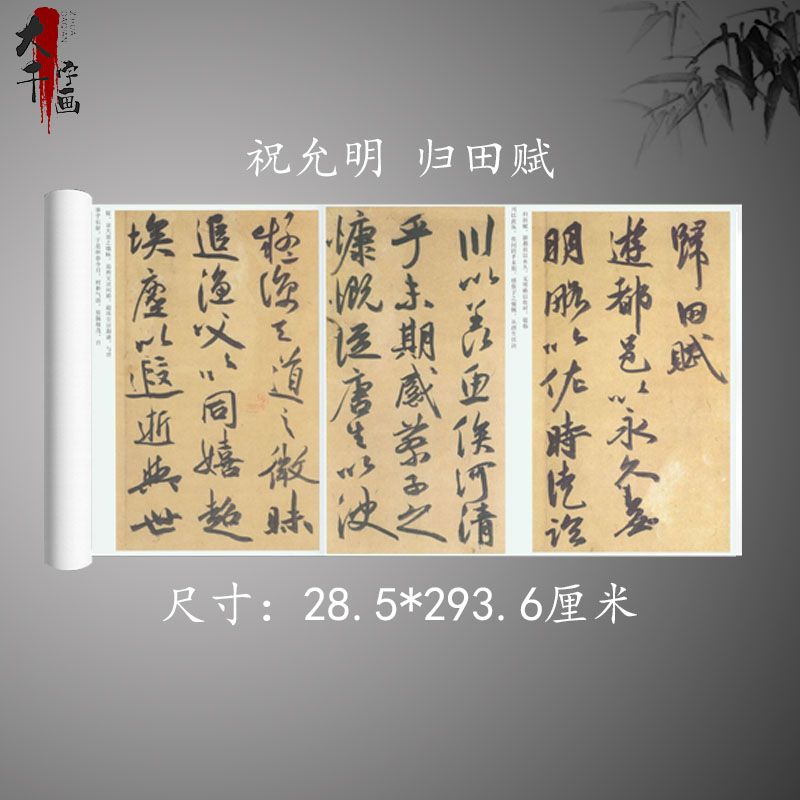 大千字画
ZHUA
DAQIAN
祝允明 归田赋
歸田賦
遊都邑以永久無
明略以佐時徒臨
川以羨魚俟河清
乎未期感蔡子之
慷慨從唐生以決
疑諒天道之微昧
追漁父以同嬉超
埃塵以遐逝與世
尺寸：28.5*293.6厘米